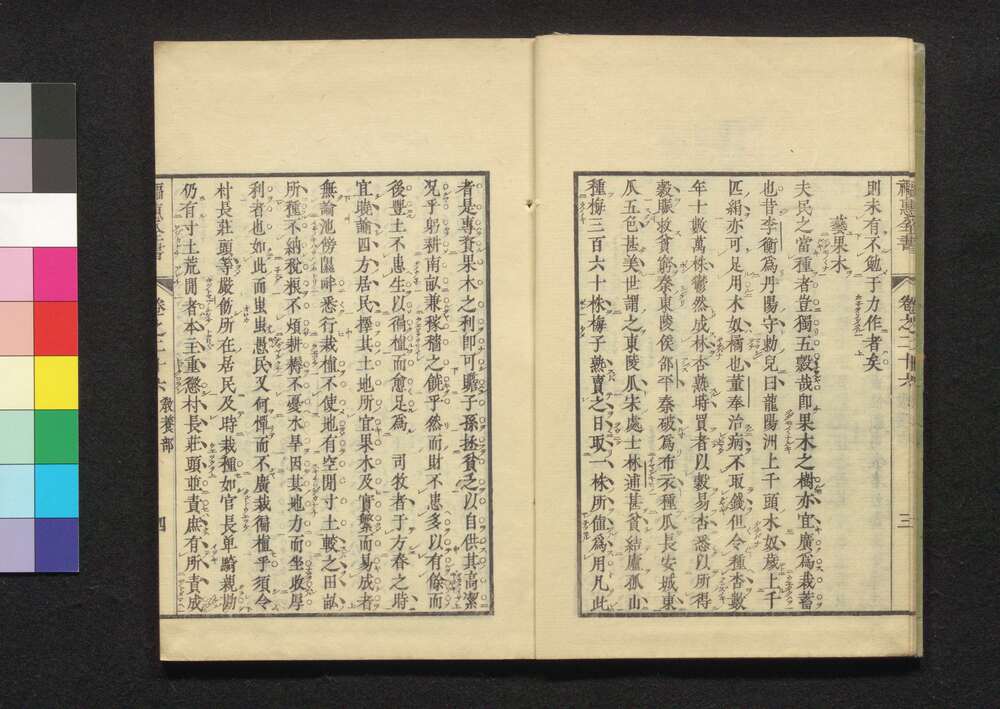 福惠全書 卷之二十六 三
則未有不勉于力作者矣
藝果木
夫民之當種者豈獨五穀哉卽果木之樹亦宜廣爲栽蓄
也昔李衡爲丹陽守勅兒曰龍陽洲上千頭木奴歲上千
匹絹亦可足用木奴橘也董奉治病不取錢但令種杏數
年十數萬株鬱然成林杏熟時買者以穀易杏悉以所得
穀賑救貧窮秦東陵侯邵平秦破爲布衣種瓜長安城東
瓜五色甚美世謂之東陵瓜宋處士林浦甚貧結廬孤山
種梅三百六十株梅子熟賣之日取一株所值爲用凡此
者是專賚果木之利卽可贍子孫拯貧乏以自供其高潔
况乎躬耕南畝兼稼穡之饒乎然而財不患多以有餘而
後豐土不患生以徧植而愈足爲 司牧者于方春之時
宜曉諭四方居民擇其土地所宜果木及實繁而易成者
無論池傍隰畔悉行栽植不使地有空閒寸土較之田畝
所種不納稅根不煩耕耨不憂水旱因其地力而坐收厚
利者也如此而蚩蚩愚民又何憚而不廣栽徧植乎須令
村長莊頭等嚴飭所在居民及時栽種如官長单騎親勘
仍有寸土荒閒者本主重懲村長莊頭並責庶有所責成
福惠全書 卷之二十六 敎養部 四